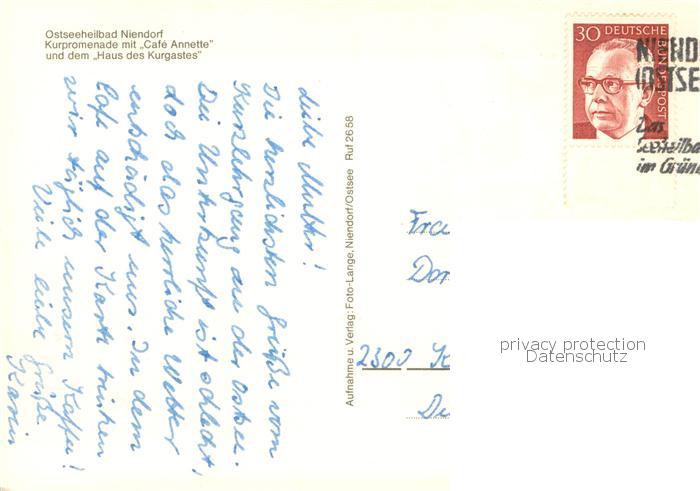 Ostseeheilbad Niendorf
Kurpromenade mit „Café Annette"
und dem „Haus des Kurgastes"
Liebe Mutter!
Die herzlichsten Grüße vom
Kurzlehrgang an der Ostsee.
Die Unterkunft ist schlecht,
doch das herrliche Wetter
entschädigt uns. In dem
Café auf der Karte trinken
wir täglich unsern Kaffee!
Viele liebe Grüße
Karin
Aufnahme u. Verlag: Foto-Lange, Niendorf/Ostsee Ruf 26 58
30 DEUTSCHE
BUNDESPOST
NIEND
(OSTSE
Das
Seeheilba
im Grüne
Fra
Dor
2300 K
De
privacy protection
Datenschutz